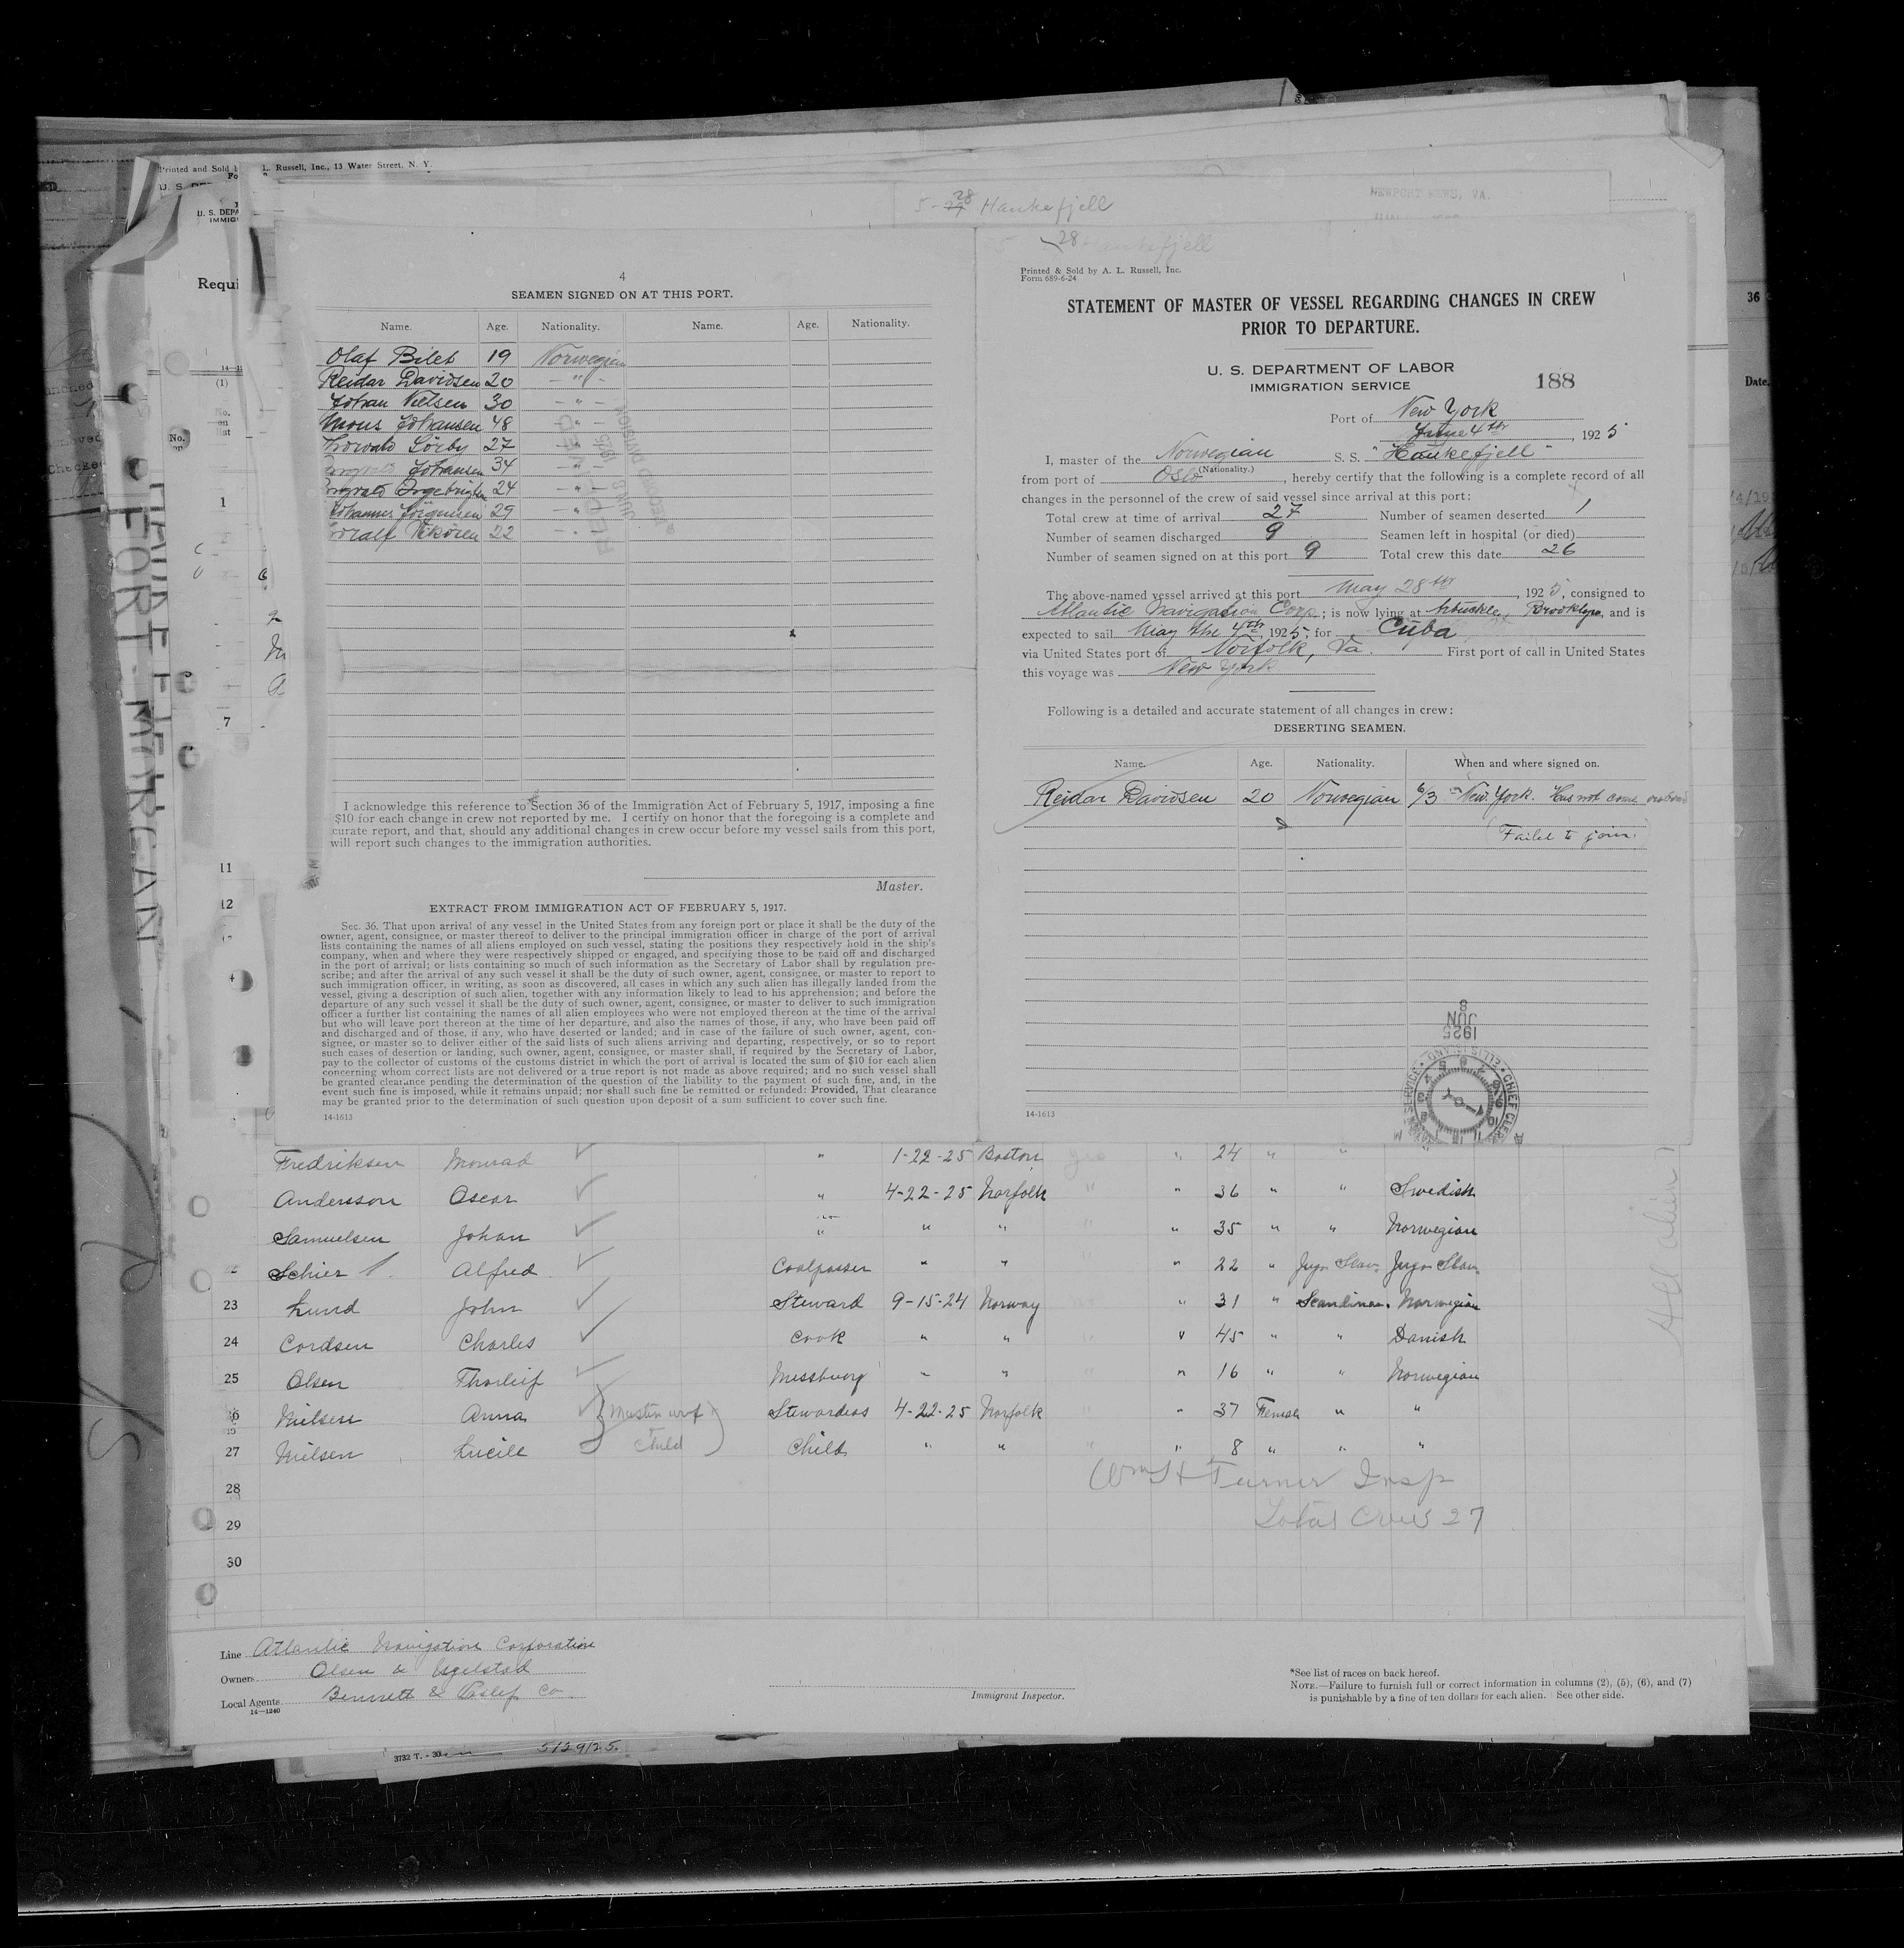 Printed and Sold b
L. Russell, Inc., 13 Water Street, N. Y.
U. S. DEPA
IMMIG
Requi
5-28 Haukefjell
NEWPORT NEWS, VA.
4
SEAMEN SIGNED ON AT THIS PORT.
Name. Age. Nationality. Name. Age. Nationality.
Olaf Bilet 19 Norwegian
Reidar Davidsen 20 - " -
Johan Nielsen 30 - " -
Mons Johansen 48 - " -
Thorvald Sörby 27 - " -
Johansen 34 - " -
24 - " -
Johannes Jörgensen 29 - " -
22 - " -
I acknowledge this reference to Section 36 of the Immigration Act of February 5, 1917, imposing a fine
$10 for each change in crew not reported by me. I certify on honor that the foregoing is a complete and
curate report, and that, should any additional changes in crew occur before my vessel sails from this port,
will report such changes to the immigration authorities.
Master.
EXTRACT FROM IMMIGRATION ACT OF FEBRUARY 5, 1917.
Sec. 36. That upon arrival of any vessel in the United States from any foreign port or place it shall be the duty of the
owner, agent, consignee, or master thereof to deliver to the principal immigration officer in charge of the port of arrival
lists containing the names of all aliens employed on such vessel, stating the positions they respectively hold in the ship's
company, when and where they were respectively shipped or engaged, and specifying those to be paid off and discharged
in the port of arrival; or lists containing so much of such information as the Secretary of Labor shall by regulation pre-
scribe; and after the arrival of any such vessel it shall be the duty of such owner, agent, consignee, or master to report to
such immigration officer, in writing, as soon as discovered, all cases in which any such alien has illegally landed from the
vessel, giving a description of such alien, together with any information likely to lead to his apprehension; and before the
departure of any such vessel it shall be the duty of such owner, agent, consignee, or master to deliver to such immigration
officer a further list containing the names of all alien employees who were not employed thereon at the time of the arrival
but who will leave port thereon at the time of her departure, and also the names of those, if any, who have been paid off
and discharged and of those, if any, who have deserted or landed; and in case of the failure of such owner, agent, con-
signee, or master so to deliver either of the said lists of such aliens arriving and departing, respectively, or so to report
such cases of desertion or landing, such owner, agent, consignee, or master shall, if required by the Secretary of Labor,
pay to the collector of customs of the customs district in which the port of arrival is located the sum of $10 for each alien
concerning whom correct lists are not delivered or a true report is not made as above required; and no such vessel shall
be granted clearance pending the determination of the question of the liability to the payment of such fine, and, in the
event such fine is imposed, while it remains unpaid; nor shall such fine be remitted or refunded: Provided, That clearance
may be granted prior to the determination of such question upon deposit of a sum sufficient to cover such fine.
14-1613
28 Haukefjell
Printed & Sold by A. L. Russell, Inc.
Form 689-6-24
STATEMENT OF MASTER OF VESSEL REGARDING CHANGES IN CREW
PRIOR TO DEPARTURE.
U. S. DEPARTMENT OF LABOR
IMMIGRATION SERVICE
188
Port of New York
June 4th, 1925
I, master of the Norwegian S. S. "Haukefjell"
(Nationality.)
from port of Oslo, hereby certify that the following is a complete record of all
changes in the personnel of the crew of said vessel since arrival at this port:
Total crew at time of arrival 27 Number of seamen deserted 1
Number of seamen discharged 9 Seamen left in hospital (or died)
Number of seamen signed on at this port 9 Total crew this date 26
The above-named vessel arrived at this port May 28th, 1925, consigned to
Atlantic Navigation Corp.; is now lying at Arbuckle, Brooklyn, and is
expected to sail May the 4th, 1925; for Cuba
via United States port of Norfolk, Va. First port of call in United States
this voyage was New York
Following is a detailed and accurate statement of all changes in crew:
DESERTING SEAMEN.
Name. Age. Nationality. When and where signed on.
Reidar Davidsen 20 Norwegian 6/3 - New York. Has not come onboard
(Failed to join.)
8
JUN
1925
ELLIS ISLAND
CHIEF CLERK
14-1613
Fredriksen Monrad " 1-22-25 Boston " 24 " "
Andersson Oscar " 4-22-25 Norfolk " " 36 " " Swedish
Samuelsen Johan " " " " " 35 " " Norwegian
Schier Alfred Coalpasser " " " " 22 " Jugo Slav. Jugo Slav.
23 Lund John Steward 9-15-24 Norway " 31 " Scandinav. Norwegian
24 Cordsen Charles Cook " " " " 45 " " Danish
25 Olsen Thorleif Messboy " " " " 16 " " Norwegian
26 Nielsen Anna Stewardess 4-22-25 Norfolk " " 37 Female " "
27 Nielsen Lucile Child Child " " " " 8 " " "
28
29
30
Wm H Turner Insp
Total Crew 27
Line Atlantic Navigation Corporation
Owners Olsen & Ugelstad
Local Agents Bennett & Co
14-1240
Immigrant Inspector.
*See list of races on back hereof.
NOTE.—Failure to furnish full or correct information in columns (2), (5), (6), and (7)
is punishable by a fine of ten dollars for each alien. See other side.
3732 T. - 30
5/29/25.